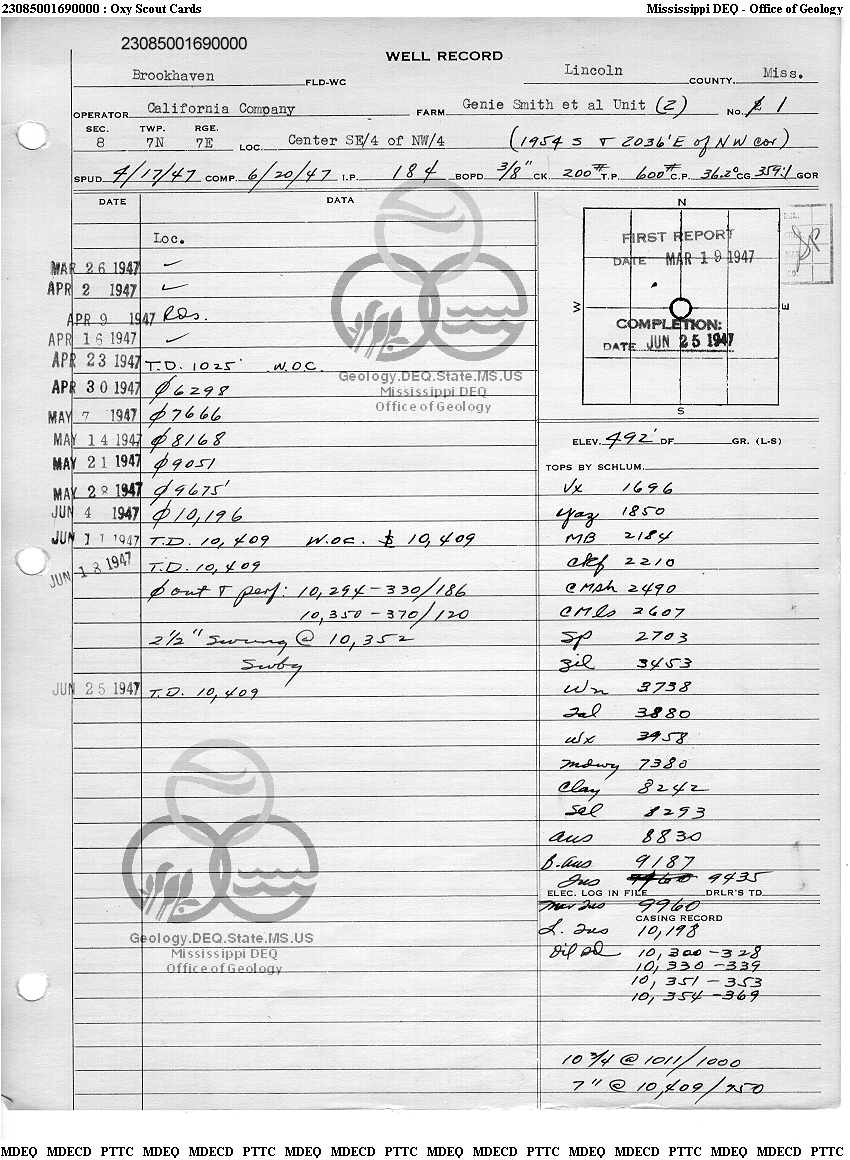 23085001690000 : Oxy Scout Cards Mississippi DEQ - Office of Geology
23085001690000
WELL RECORD
Brookhaven FLD-WC Lincoln COUNTY, Miss.
OPERATOR California Company FARM Genie Smith et al Unit (2) NO. 1
SEC. TWP. RGE.
8 7N 7E LOC. Center SE/4 of NW/4 (1954 S & 2036' E of NW cor)
SPUD 4/17/47 COMP. 6/20/47 I.P. 184 BOPD 3/8" CK. 200# T.P. 600# C.P. 36.2° CG 359:1 GOR
DATE DATA
Loc.
MAR 26 1947 ✓
APR 2 1947 ✓
APR 9 1947 Rds.
APR 16 1947 ✓
APR 23 1947 T.D. 1025' W.O.C.
APR 30 1947 ∅ 6298
MAY 7 1947 ∅ 7666
MAY 14 1947 ∅ 8168
MAY 21 1947 ∅ 9051
MAY 28 1947 ∅ 9675'
JUN 4 1947 ∅ 10,196
JUN 11 1947 T.D. 10,409 W.O.C. 10,409
JUN 18 1947 T.D. 10,409
∅ out & perf: 10,294-330/186
10,350-370/120
2 1/2" swung @ 10,352
Swbg
JUN 25 1947 T.D. 10,409
N
W
E
S
FIRST REPORT
DATE MAR 19 1947
COMPLETION:
DATE JUN 25 1947
ELEV. 492' DF GR. (L-S)
TOPS BY SCHLUM.
Vx 1696
Yaz 1850
MB 2184
Ckf 2210
CMsh 2490
CMls 2607
Sp 2703
Zil 3453
Wn 3738
Tal 3880
Wx 3958
Mdwy 7380
Clay 8242
Sel 8293
Aus 8830
B. Aus 9187
Tus 9435
ELEC. LOG IN FILE DRLR'S TD
Mar Tus 9960
CASING RECORD
L. Tus 10,198
Oil Sd 10,300-328
10,330-339
10,351-353
10,354-369
10 3/4 @ 1011/1000
7" @ 10,409/750
Geology.DEQ.State.MS.US
Mississippi DEQ
Office of Geology
Geology.DEQ.State.MS.US
Mississippi DEQ
Office of Geology
MDEQ MDECD PTTC MDEQ MDECD PTTC MDEQ MDECD PTTC MDEQ MDECD PTTC MDEQ MDECD PTTC MDEQ MDECD PTTC